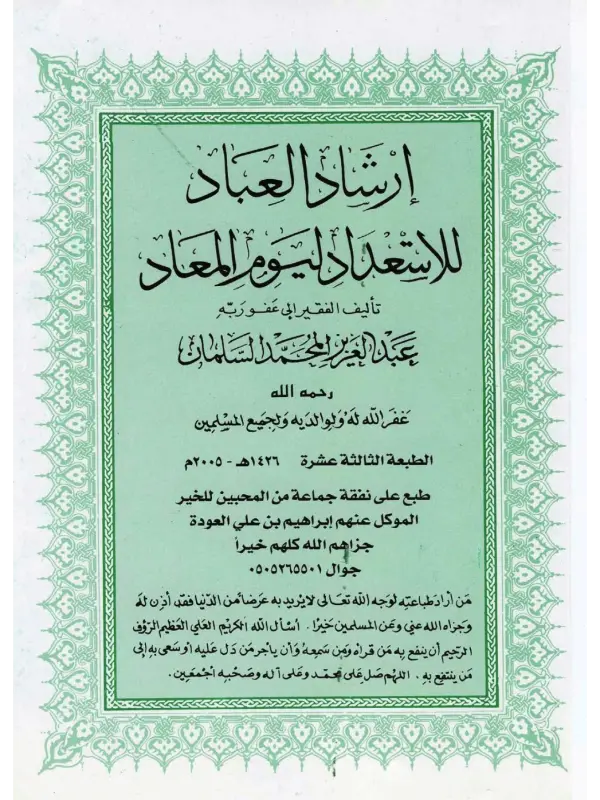 إرشاد العباد
للاستعداد ليوم المعاد
تأليف الفقير إلى عفو ربه
عبد العزيز المحمد السلمان
رحمه الله
غفر الله له ولوالديه ولجميع المسلمين
الطبعة الثالثة عشرة ١٤٢٦هـ - ٢٠٠٥م
طبع على نفقة جماعة من المحبين للخير
الموكل عنهم إبراهيم بن علي العودة
جزاهم الله كلهم خيراً
جوال ٠٥٠٥٢٦٥٥٠١
مَن أراد طباعته لوجه الله تعالى لا يريد به عرضا من الدنيا فقد أذن له
وجزاه الله عني وعن المسلمين خيرًا. أسأل الله الكريم العلي العظيم الرؤف
الرحيم أن ينفع به من قرأه ومن سمعه وأن يأجر من دل عليه أو سعى به إلى
من ينتفع به. اللهم صل على محمد وعلى آله وصحبه أجمعين.